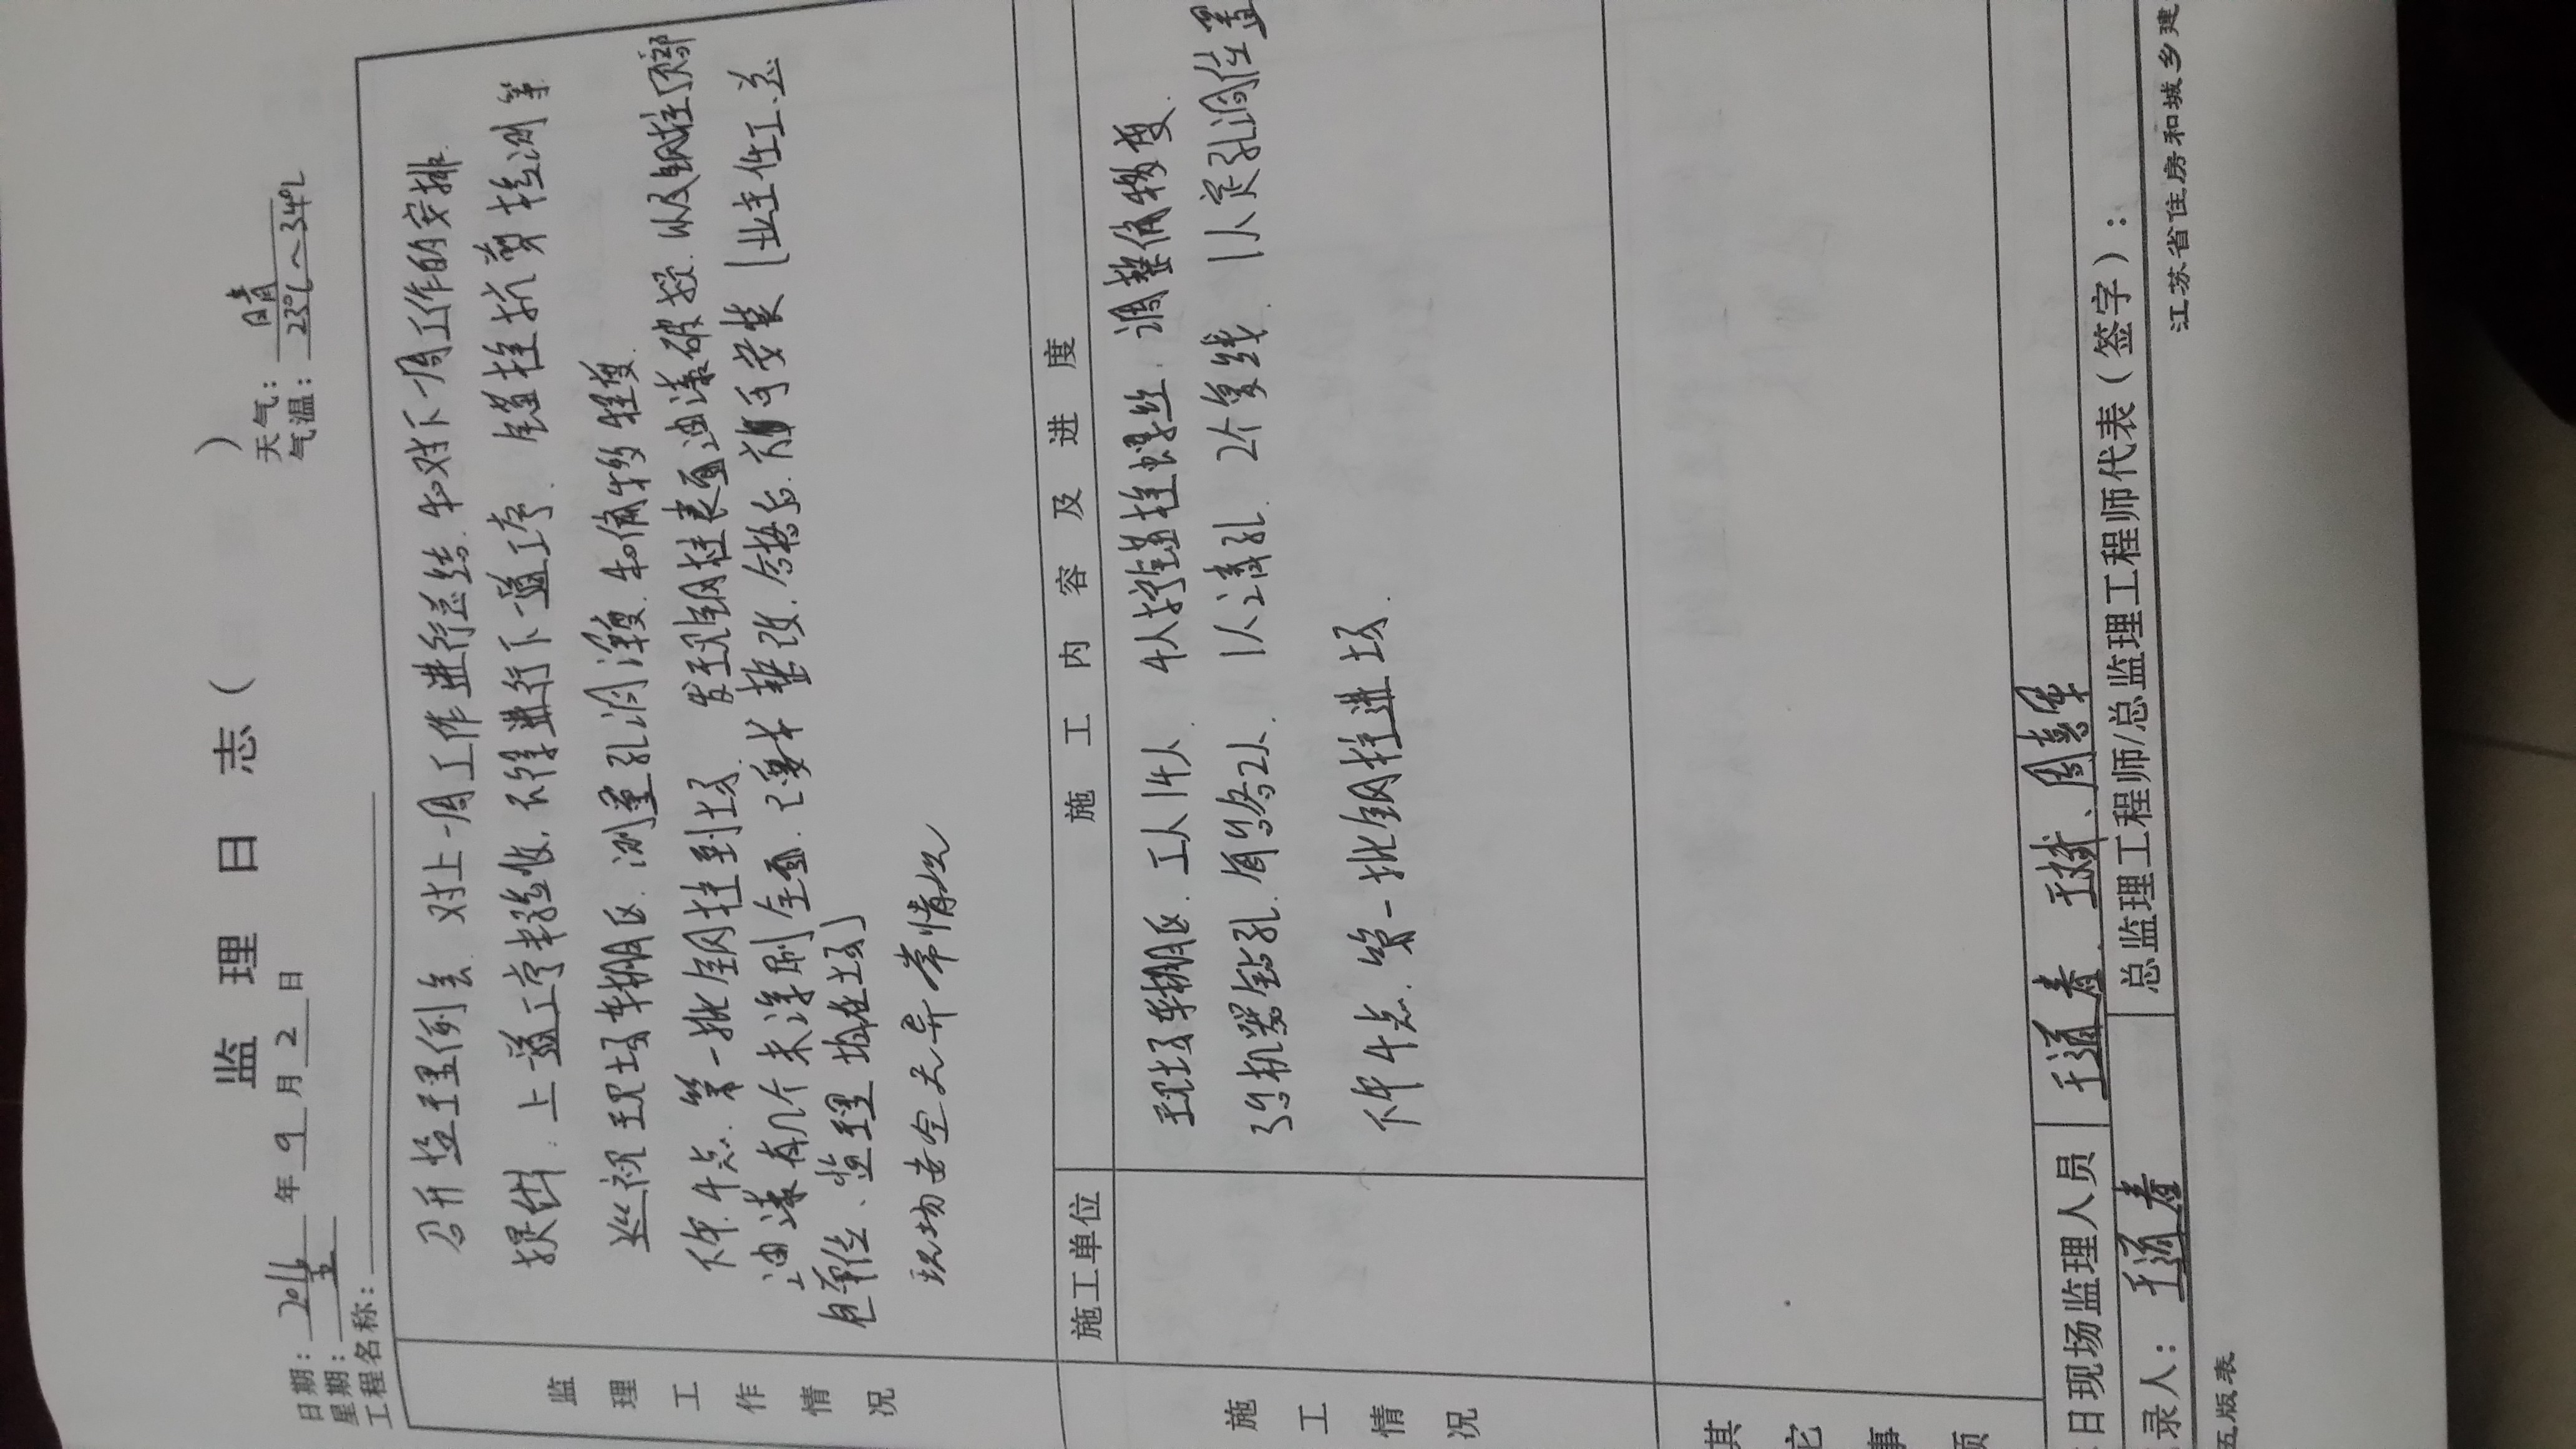 监理日志（ ）
日期：2016年9月2日 天气：晴
星期：五 气温：23℃～34℃
工程名称：
监理工作情况
召开监理例会.对上一周工作进行总结.和对下一周工作的安排.
提出.上道工序未验收.不得进行下一道工序.锚栓抗剪检测等
巡视现场车棚区.测量孔洞深度.和偏移程度.
下午4点.第一批钢柱到场.发现钢柱表面油漆破损.以及钢柱顶部
油漆有几个未涂刷全面.要求整改.合格后.方可安装[业主代工.总
包单位、监理均在场]
现场安全无异常情况
施工情况
施工单位 施工内容及进度
现场车棚区.工人14人 4人拧锚栓螺丝.调整偏移度.
3台机器钻孔.每台2人.1人清孔.2个复线.1人定孔洞位置
下午4点.第一批钢柱进场.
其它事项
日现场监理人员 王道春.王斌、周
录人：王道春 总监理工程师/总监理工程师代表（签字）：
五版表 江苏省住房和城乡建